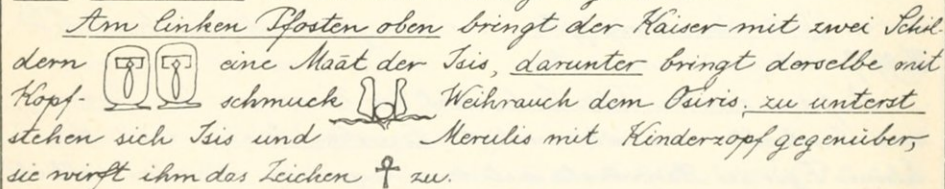 Am linken Pfosten oben bringt der Kaiser mit zwei Schil-
dern eine Maāt der Isis, darunter bringt derselbe mit
Kopf- schmuck Weihrauch dem Osiris, zu unterst
stehen sich Isis und Merulis mit Kinderzopf gegenüber,
sie wirft ihm das Zeichen ☥ zu.